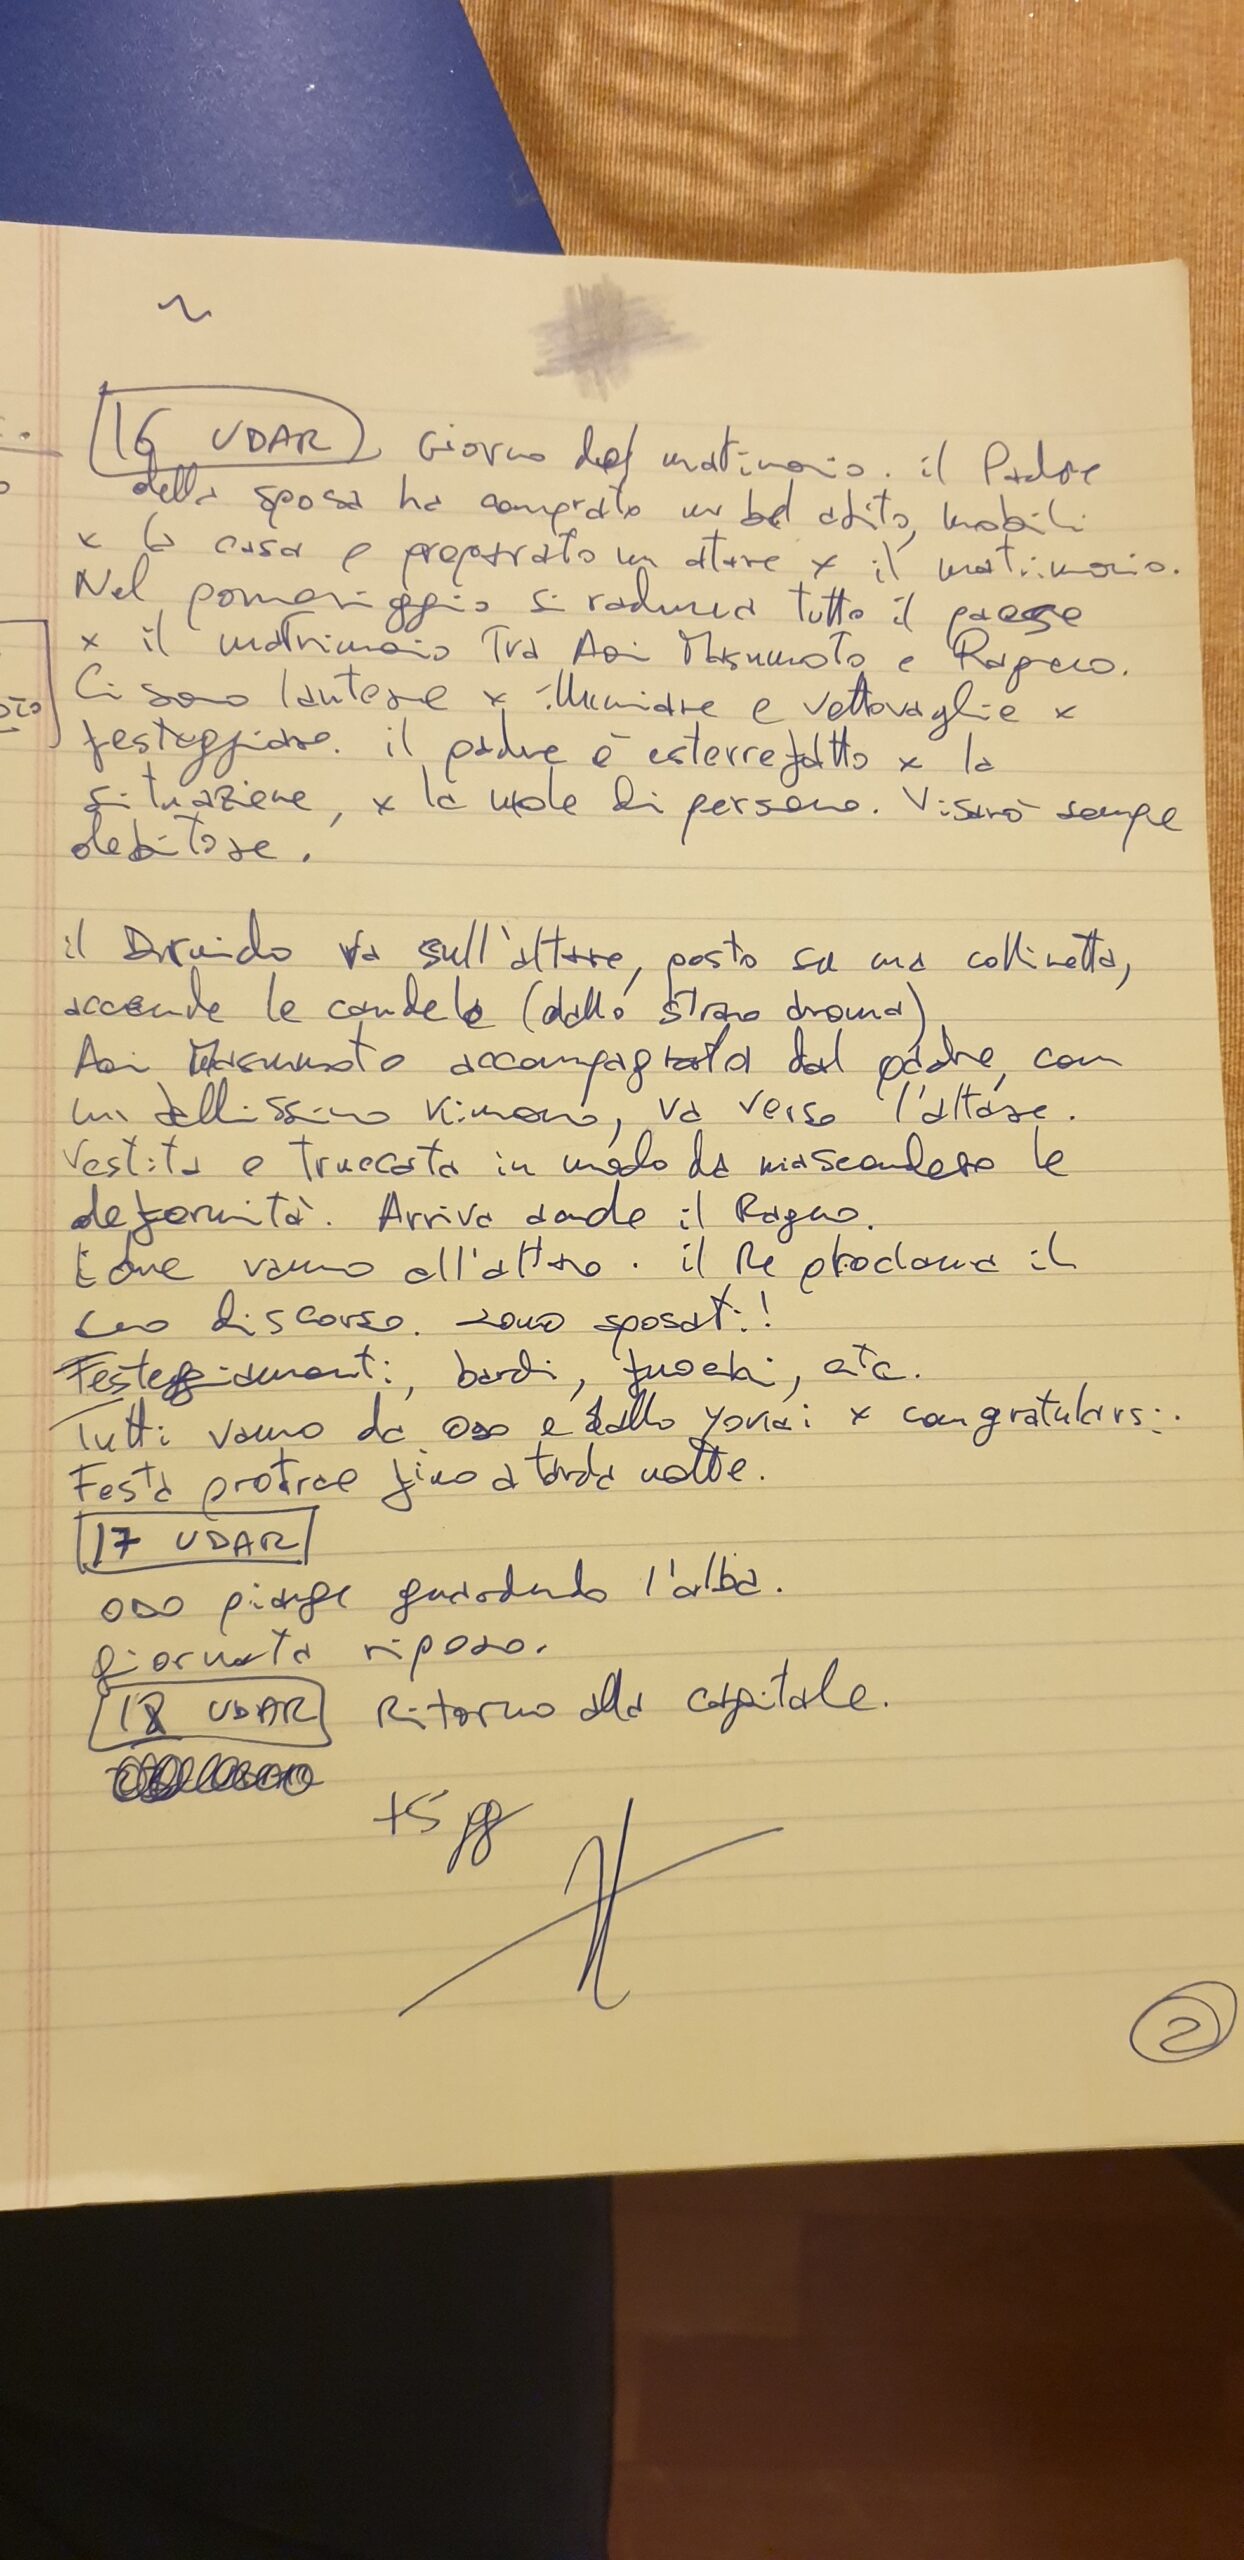 16 UDAR Giorno del matrimonio. il Padre
della sposa ha comprato un bel abito, mobili
x la casa e preparato un altare x il matrimonio.
Nel pomeriggio si raduna tutto il paese
x il matrimonio Tra Aoi Masumoto e Ragno.
Ci sono lanterne x illuminare e vettovaglie x
festeggiare. il padre è esterrefatto x la
situazione, x la mole di persone. Vi sarò sempre
debitore.
il Druido va sull'altare, posto su una collinetta,
accende le candele (dallo strano aroma)
Aoi Masumoto accompagnata dal padre, con
un bellissimo kimono, va verso l'altare.
Vestita e truccata in modo da nascondere le
deformità. Arriva anche il Ragno.
I due vanno all'altare. il Re proclama il
suo discorso. sono sposati!
Festeggiamenti, bardi, fuochi, etc.
Tutti vanno da Oso e dallo Yoriai x congratularsi.
Festa protrae fino a tarda notte.
17 UDAR
Oso piange guardando l'alba.
giornata riposo.
18 UDAR Ritorno alla capitale.
+5
2